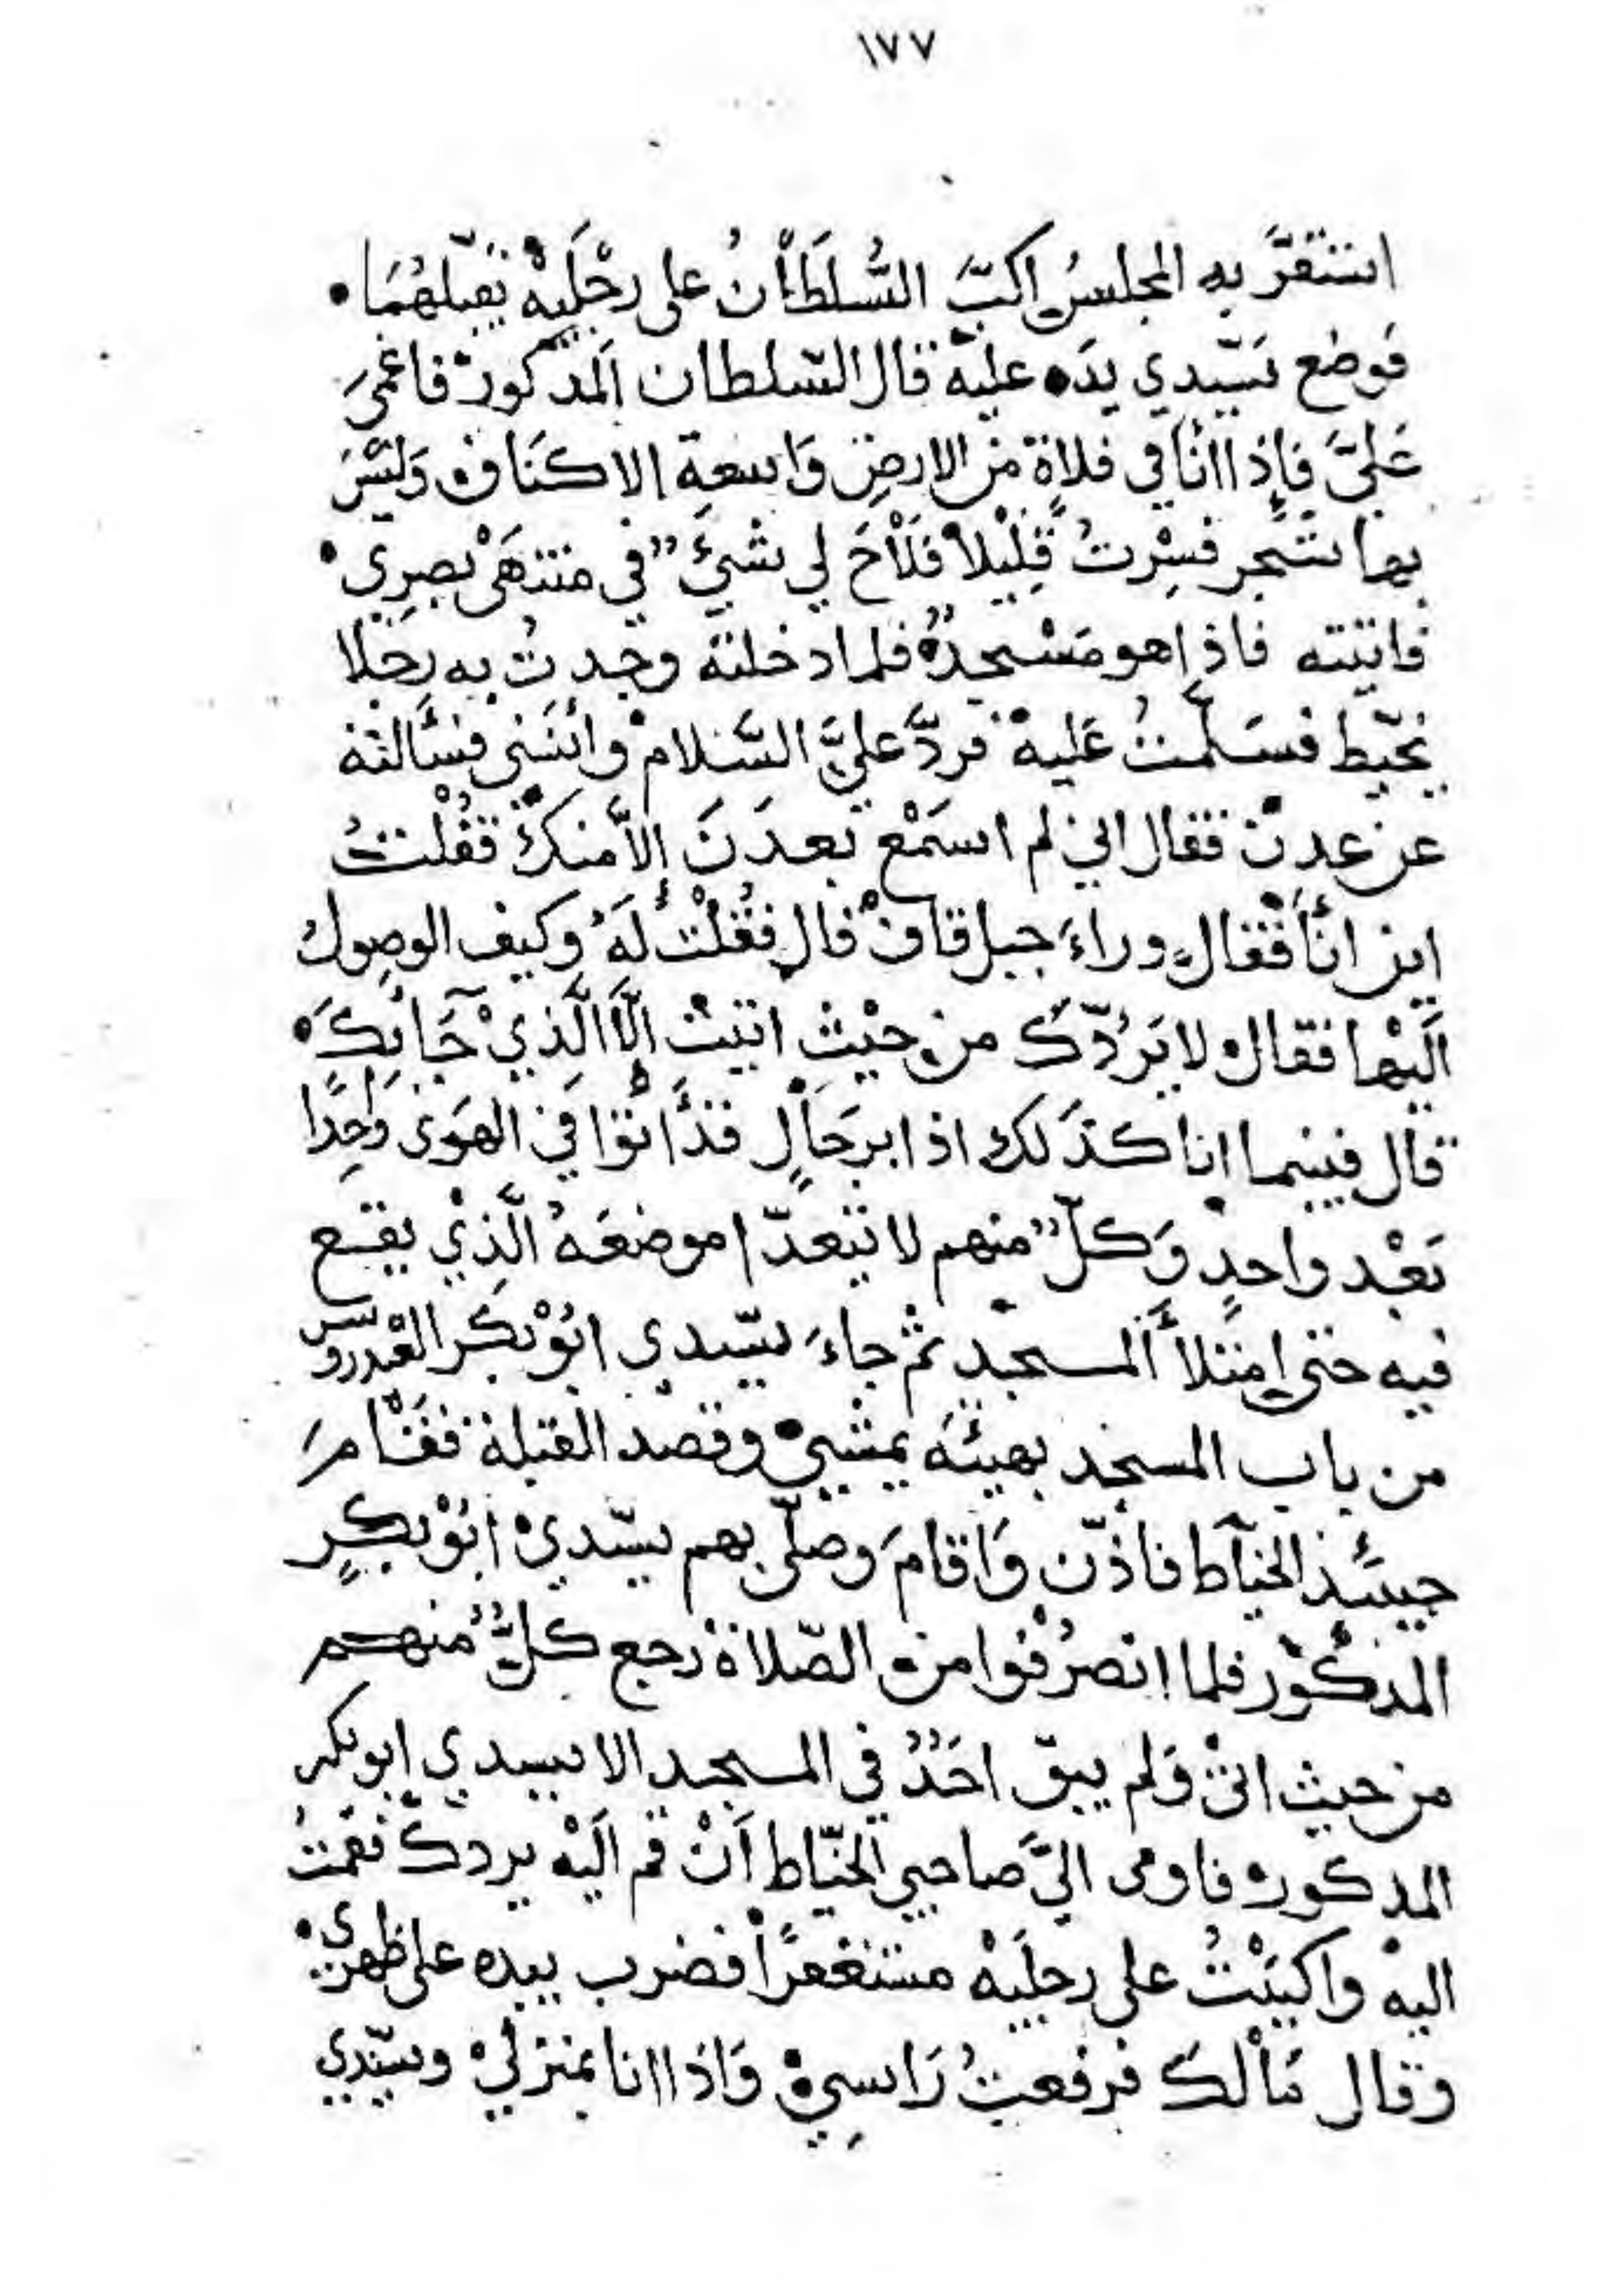 ١٧٧
استقرَّ بهِ المجلسُ اكبَّ السُّلطَانُ على رجْلَيهْ يقبّلهُمَا •
فوضع سَيّدي يدَه عليهْ قال السّلطان المذكورْ فاغمىَ
عَليَّ فإذا انَا في فلاةٍ من الارضِ وَاسعةِ الاكنَاف وَليْسَ
بها شجر فسِرتُ قليْلاً فَلَاحَ لي شيءٌ في منتهَى بصرِي •
فاتيته فاذا هو مَسْجدٌ فلما دخلته وجدتُ به رجلا
يخيّط فسَلّمتُ عَليهْ فردَّ عليَّ السَّلامْ وانسَني فسَألته
عن عدنْ فقال اني لم اسمَعْ بعدَنَ الاَّ منكْ فقُلْتُ
اين انَا فقال وراءَ جبل قافْ قال فقُلْتُ لَهُ وكيف الوصولُ
اليْها فقالْ لا يَرُدّكَ من حيْثِ اتيتْ الَّا الَّذيْ جَا بِكَ •
قال فبينما انا كذَلك اذا برجَالٍ قدَ اتوا في الهَوى واحِدًا
بَعْد واحدٍ وَكلٌّ منهم لا يتعدّا موضعَهُ الَّذِيْ يقع
فيه حتى امتلأَ المسجد ثم جاءَ سيّدي ابُوْ بكر العْيدروس
من باب المسجد بهيئَة يمشيْ وقصد القبلة فقَامَ
حينئذ الخيّاط فاذّن وَاقامَ وصلّى بهم سيّديْ ابُوْ بكرٍ
المذكوْر فلما انصرُفوا من الصّلاةْ رجع كلٌّ منهم
من حيث اتىْ وَلم يبق احَدٌ في المسجد الا سيدي ابو بكر
المذكورْ فاومى اليَّ صاحبي الخيّاط اَنْ قم اليْه يردكْ فقمتُ
اليهْ واكبَبْتُ على رجليَهْ مستغفرًا فضرب بيده على ظهريْ •
وقال مَالْك فرفعتُ رَاسِيْ وَاذا انا بمنزليْ وسيّدي